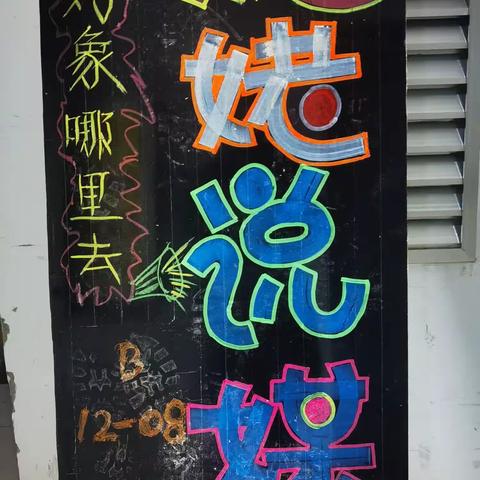 对象哪里去
姥说媒
B
12-08